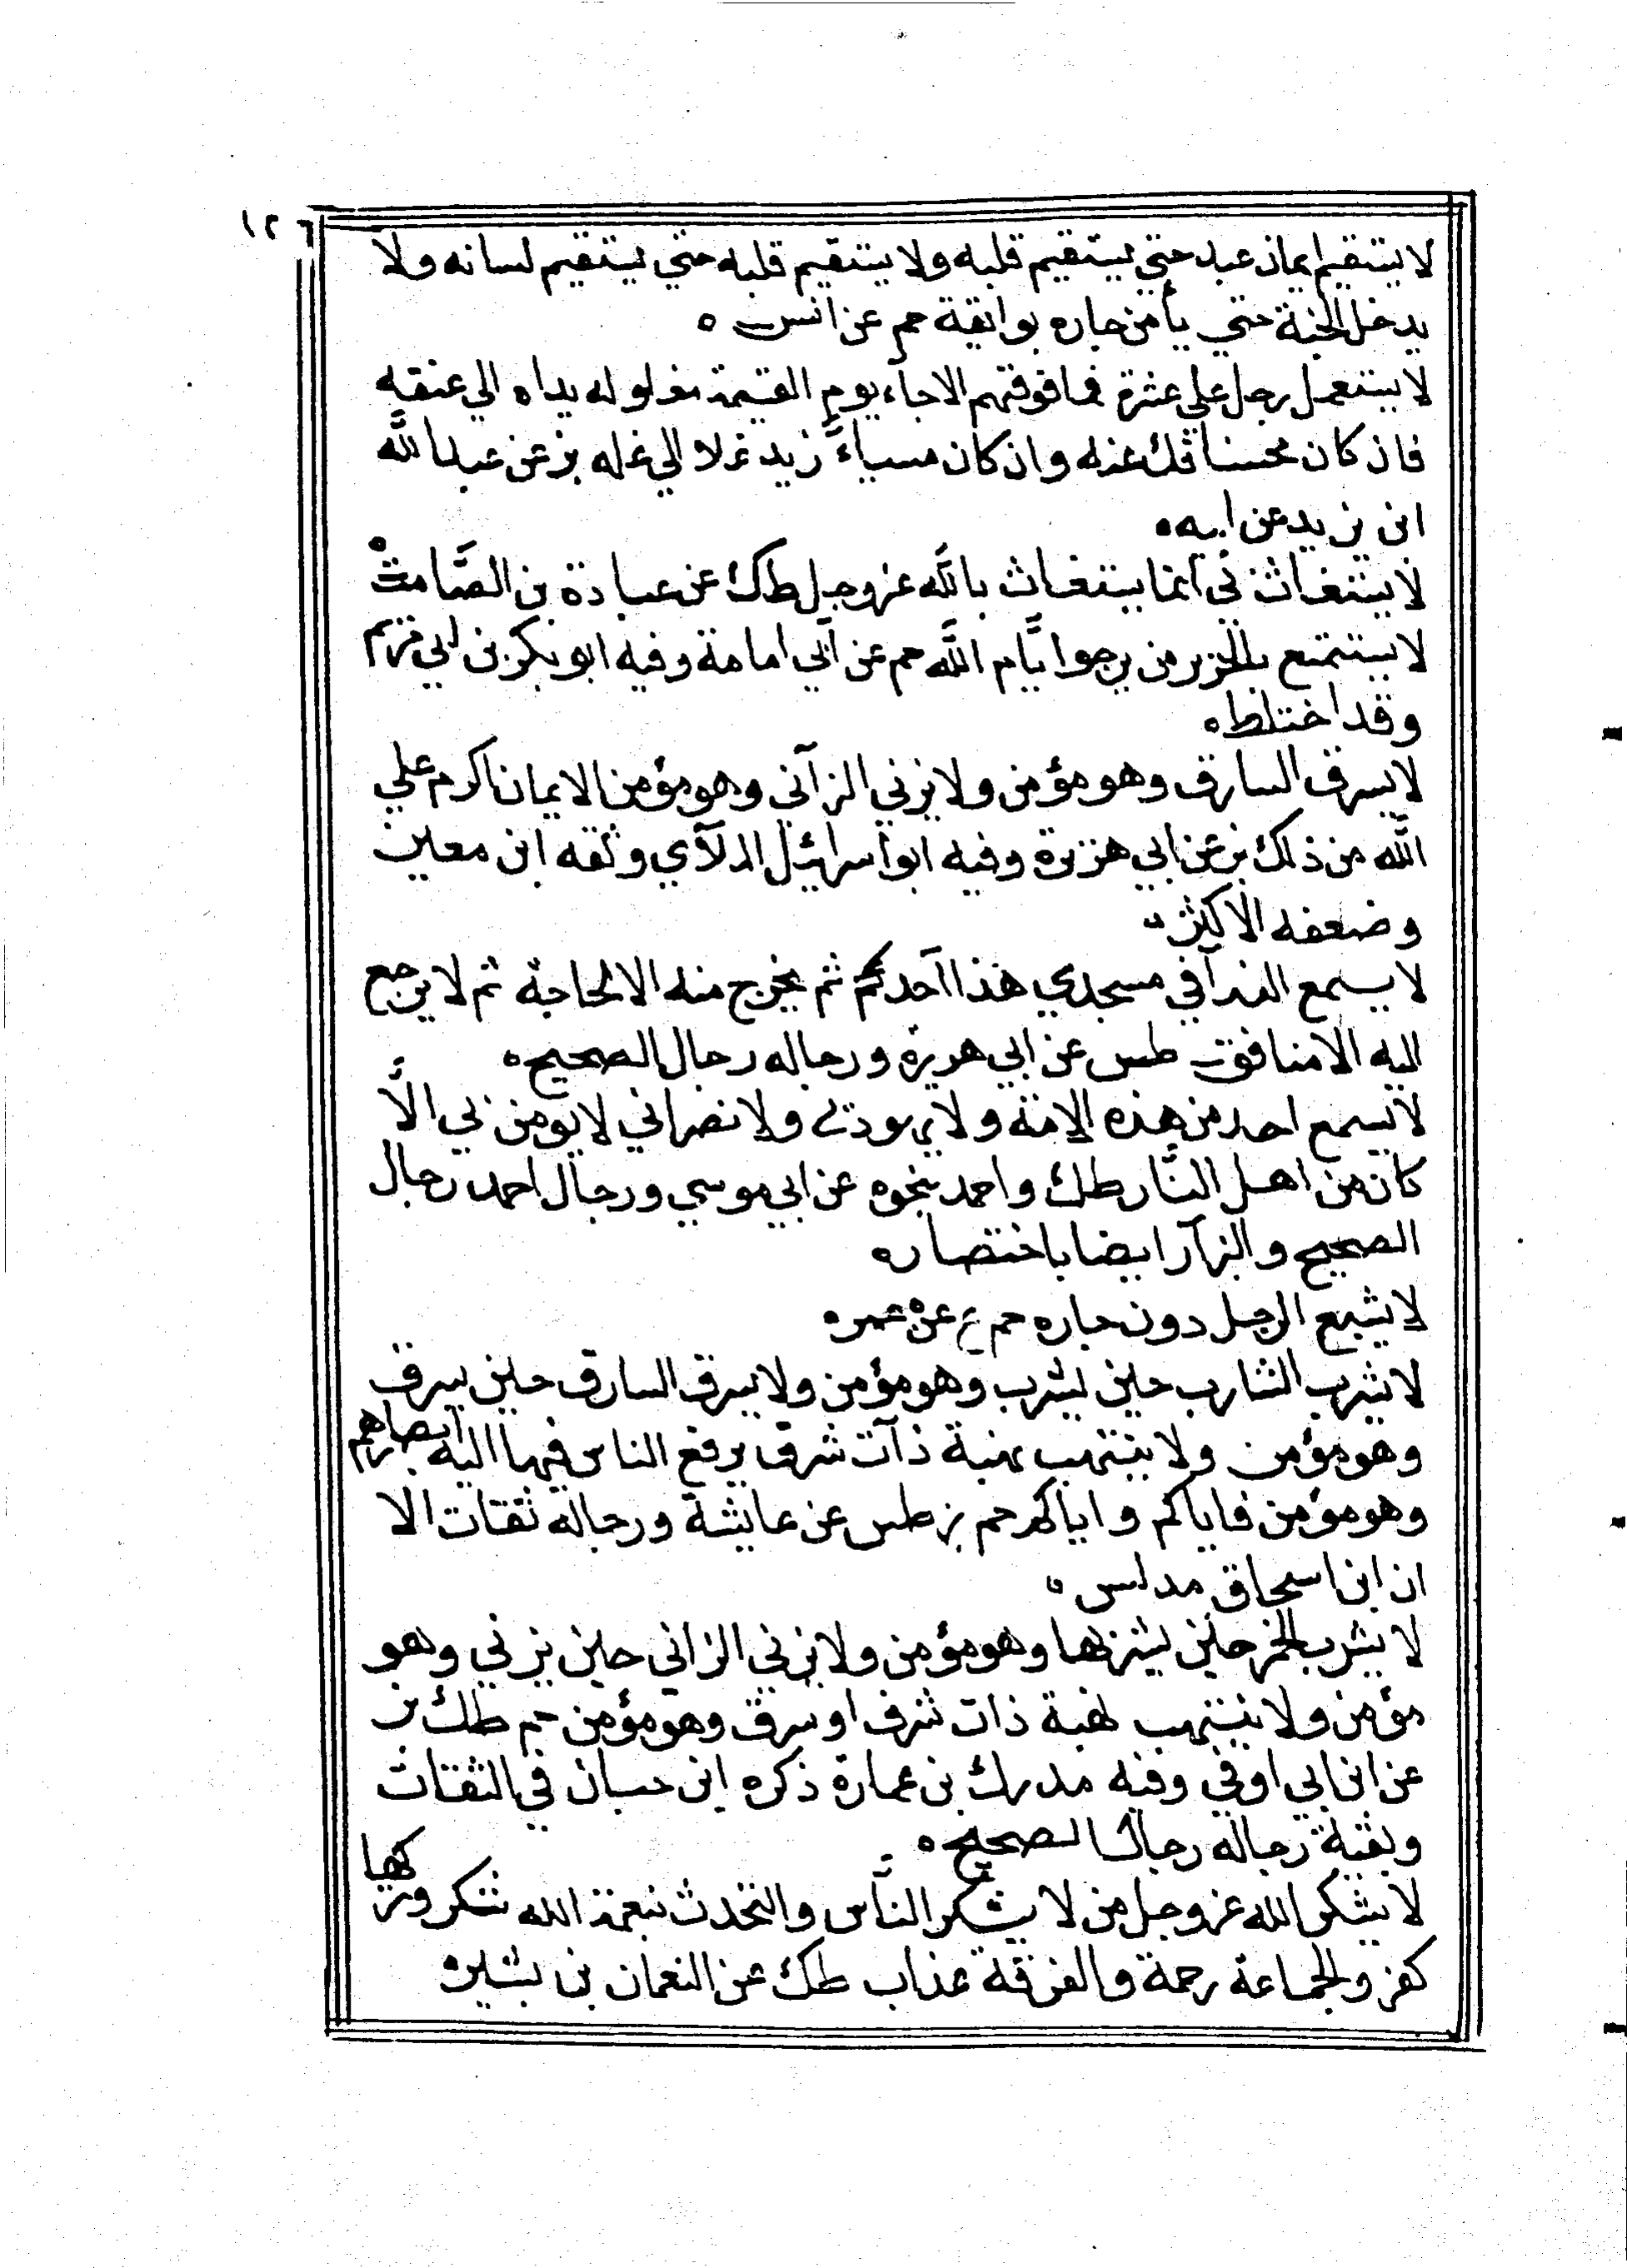 ١٢٦
لا يستقيم ايمان عبد حتي يستقيم قلبه ولا يستقيم قلبه حتي يستقيم لسانه ولا
يدخل الجنة حتي يأمن جاره بوائقة حم عن انس ه
لا يستعمل رجل علي عشرة فما فوقهم الا جاء يوم القيمة مغلوله يداه الي عنقه
فان كان محسنا فك عنه وان كان مسياء زيد غلا الي غله بز عن عبد الله
ابن يزيد عن ابيه ه
لا يستغاث بي انما يستغاث بالله عز وجل طك عن عبادة بن الصامت ه
لا يستمتع بالحرير من يرجوا ايام الله حم عن ابي امامة وفيه ابو بكر بن ابي مريم
وقد اختلط ه
لا يسرق السارق وهو مؤمن ولا يزني الزاني وهو مؤمن الايمان اكرم علي
الله من ذلك بز عن ابي هريرة وفيه ابو اسرائيل الملآي وثقه ابن معين
وضعفه الاكثر ه
لا يسمع الندآ في مسجدي هذا احدكم ثم يخرج منه الا لحاجة ثم لا يرجع
اليه الا منافق طس عن ابي هريرة ورجاله رجال الصحيح ه
لا يسمع احد من هذه الامة ولا يهودي ولا نصراني لا يومن بي الا
كان من اهل النار طك واحمد بنحوه عن ابي موسي ورجال احمد رجال
الصحيح والبزار ايضا باختصار ه
لا يشبع الرجل دون جاره حم ع عن عمر ه
لا يشرب الشارب حين يشرب وهو مؤمن ولا يسرق السارق حين يسرق
وهو مؤمن ولا ينتهب نهبة ذآت شرف يرفع الناس فيها اليه ابصارهم
وهو مؤمن فاياكم واياكم حم بز طس عن عايشة ورجاله ثقات الا
ان ابن اسحاق مدلس ه
لا يشرب الخمر حين يشربها وهو مؤمن ولا يزني الزاني حين يزني وهو
مؤمن ولا ينتهب نهبة ذات شرف او سرف وهو مؤمن حم طك بز
عن ابن ابي اوفي وفيه مدرك بن عمارة ذكره ابن حبان في الثقات
وبقية رجاله رجال الصحيح ه
لا يشكر الله عز وجل من لا يشكر الناس والتحدث بنعمة الله شكر وتركها
كفر والجماعة رحمة والفرقة عذاب طك عن النعمان بن بشير ه